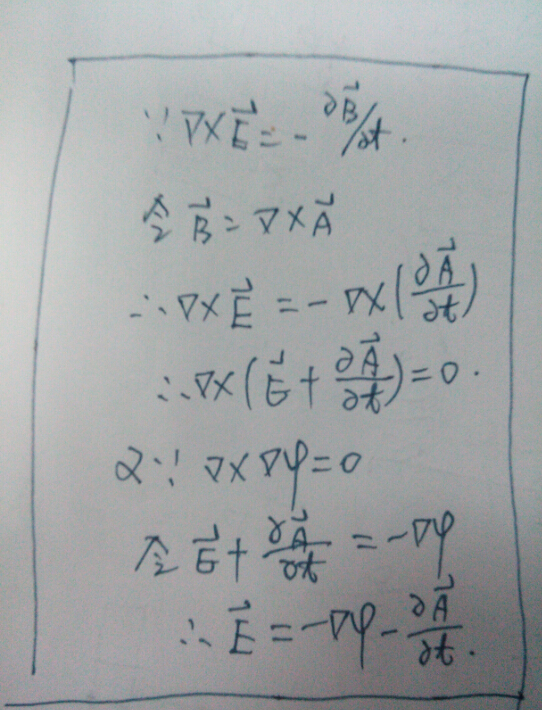 ∵ ∇×E⃗ = - ∂B⃗/∂t.
令 B⃗ = ∇×A⃗
∴ ∇×E⃗ = - ∇×(∂A⃗/∂t)
∴ ∇×(E⃗ + ∂A⃗/∂t) = 0.
又∵ ∇×∇φ = 0
令 E⃗ + ∂A⃗/∂t = -∇φ
∴ E⃗ = -∇φ - ∂A⃗/∂t.